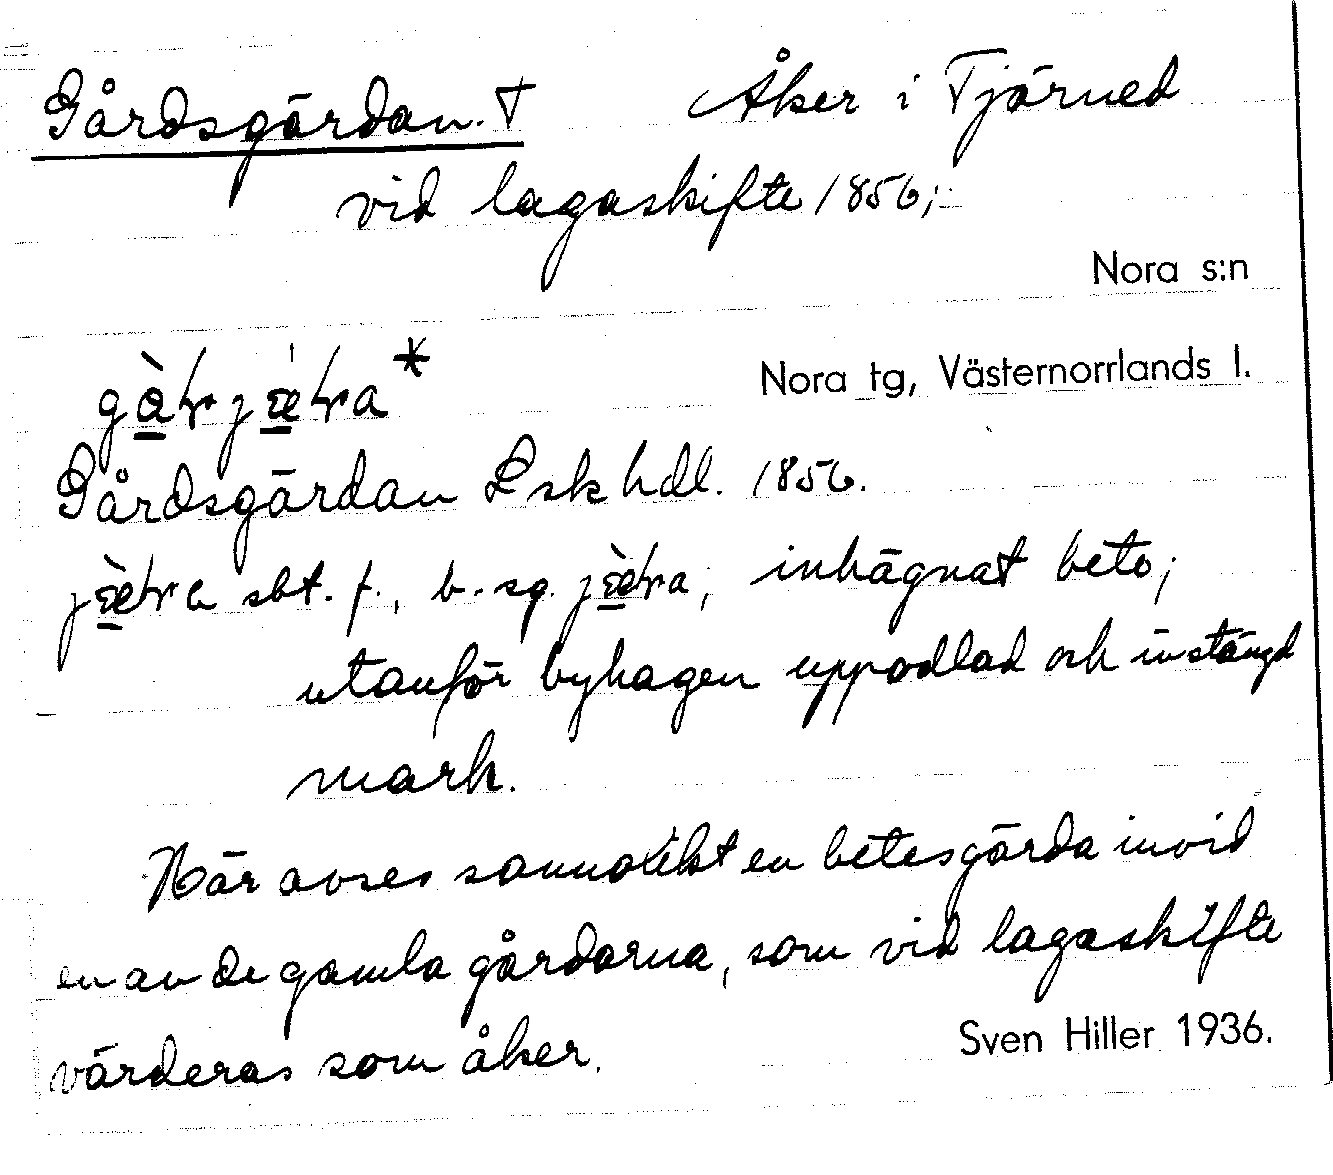 Gårdsgärdan. † Åker i Tjärned
vid lagaskifte 1856;
Nora s:n
Nora tg, Västernorrlands l.
Gårdsgärdan Lsk hdl. 1856.
sbt. f., b. sg. inhägnat bete;
utanför byhagen uppodlad och instängd
mark.
Här avses sannolikt en betesgärda invid
en av de gamla gårdarna, som vid lagaskifte
värderas som åker.
Sven Hiller 1936.